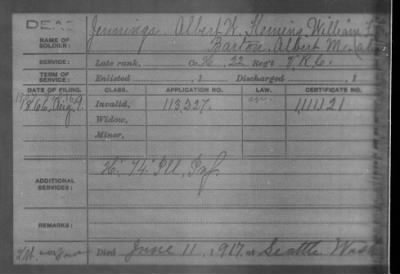 DEAD
NAME OF SOLDIER: Jennings, Albert W. Fleming, William F.
Barton, Albert
SERVICE: Late rank, Co. H, 22 Reg't V.R.C.
TERM OF SERVICE: Enlisted , 1 Discharged , 1
DATE OF FILING. CLASS. APPLICATION NO. LAW. CERTIFICATE NO.
1866, Aug 9. Invalid, 113,227. 1111121
Widow,
Minor,
ADDITIONAL SERVICES: H. 74. Ill. Inf.
REMARKS:
Died June 11, 1917, at Seattle Wash